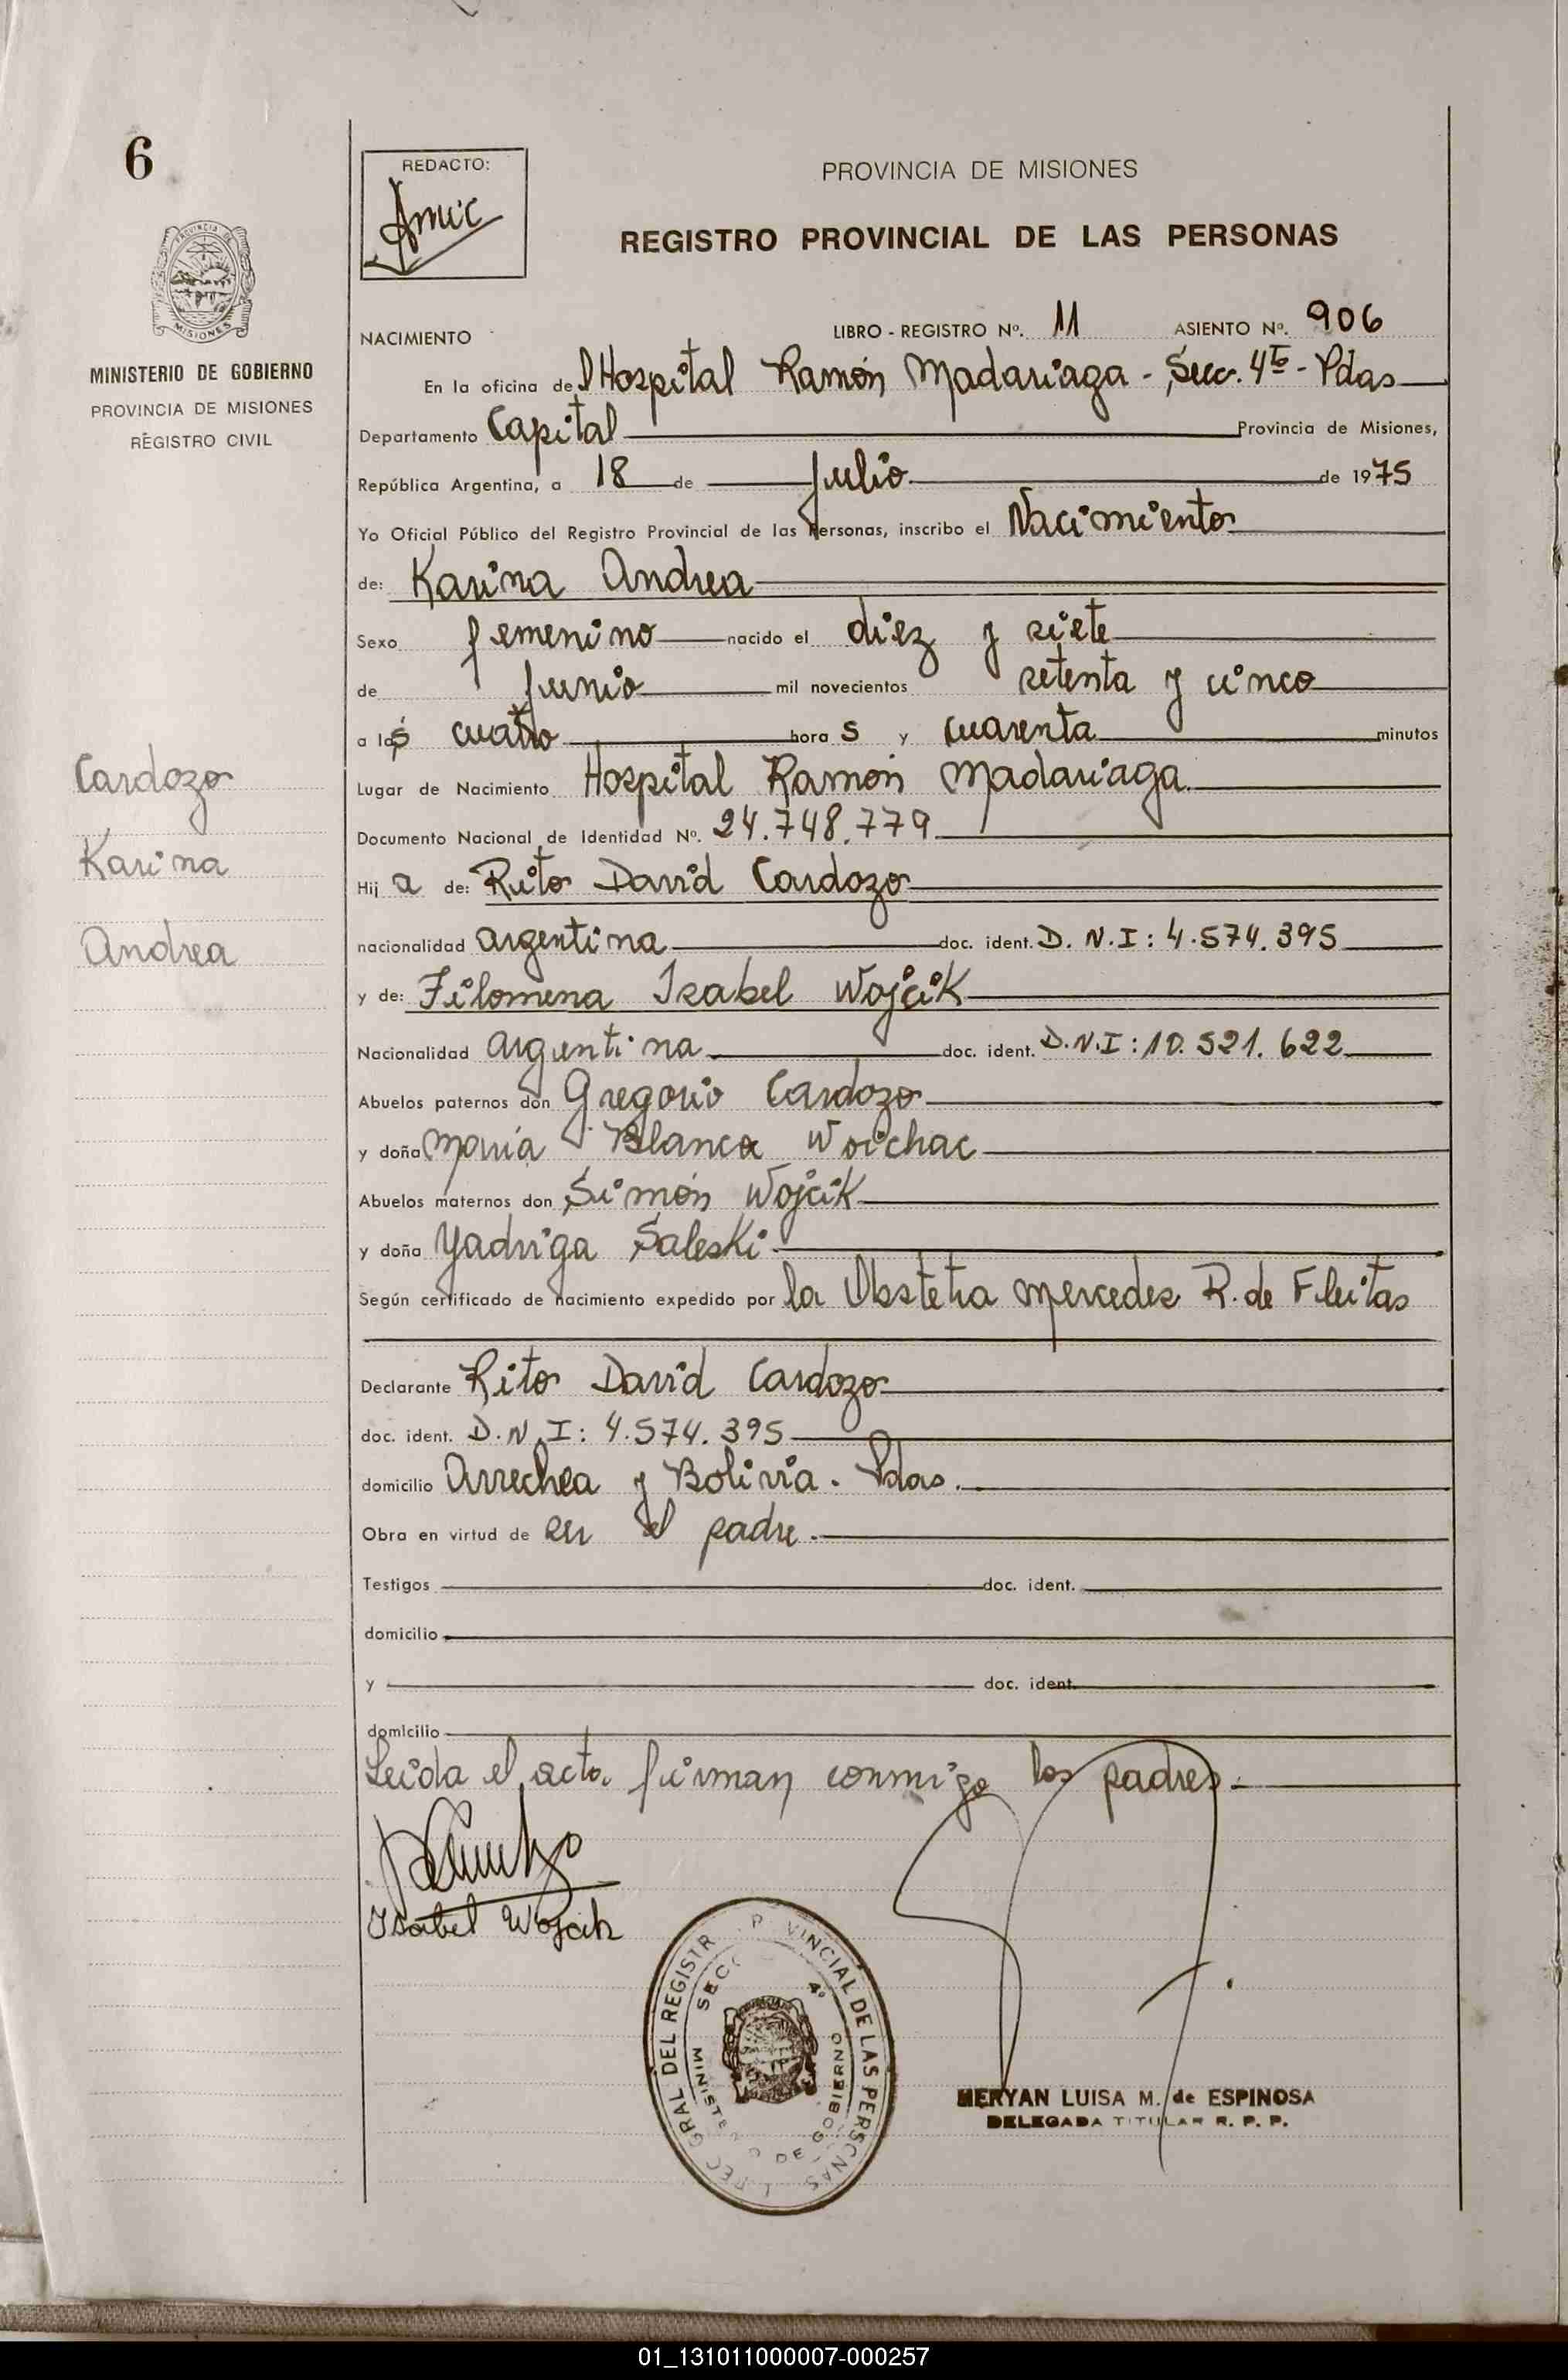 6
REDACTO:
PROVINCIA DE MISIONES
REGISTRO PROVINCIAL DE LAS PERSONAS
MISIONES
MINISTERIO DE GOBIERNO
PROVINCIA DE MISIONES
REGISTRO CIVIL
NACIMIENTO LIBRO - REGISTRO Nº. 11 ASIENTO Nº. 906
En la oficina del Hospital Ramón Madariaga - Secc. 4ta - Pdas
Departamento Capital Provincia de Misiones,
República Argentina, a 18 de Julio de 1975
Yo Oficial Público del Registro Provincial de las Personas, inscribo el Nacimiento
de: Karina Andrea
Sexo femenino nacido el diez y siete
de Junio mil novecientos setenta y cinco
a las cuatro horas y cuarenta minutos
Cardozo
Karina
Andrea
Lugar de Nacimiento Hospital Ramón Madariaga.
Documento Nacional de Identidad Nº. 24.748.779
Hija de: Rito David Cardozo
nacionalidad argentina doc. ident. D.N.I: 4.574.395
y de: Filomena Isabel Wojcik
Nacionalidad argentina doc. ident. D.N.I: 10.521.622
Abuelos paternos don Gregorio Cardozo
y doña María Blanca Woichac
Abuelos maternos don Simón Wojcik
y doña Yadviga Saleski
Según certificado de nacimiento expedido por la Obstetra Mercedes R. de Fleitas
Declarante Rito David Cardozo
doc. ident. D.N.I: 4.574.395
domicilio Arrechea y Bolivia. Pdas.
Obra en virtud de ser el padre.
Testigos doc. ident.
domicilio
y doc. ident.
domicilio
Leída el acta, firman conmigo los padres.
Isabel Wojcik
GRAL DEL REGISTR P VINCIAL DE LAS PERSONAS
SECC 4º
MINISTE O DE GOBIERNO
MERYAN LUISA M. de ESPINOSA
DELEGADA TITULAR R. P. P.
01_131011000007-000257